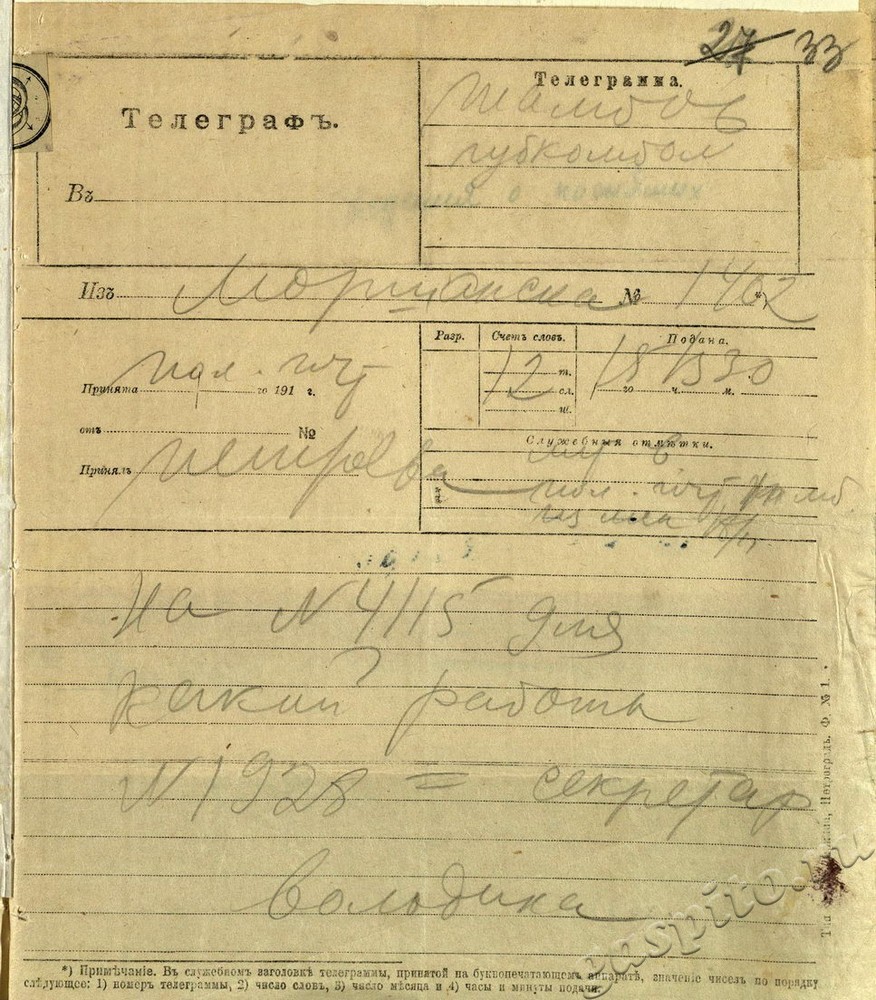 27 33
Телеграфъ.
Въ
Телеграмма.
Тамбов
губкомбол
Изъ Моршанска № 1462 *)
Принята го 191 г.
отъ №
Принялъ
Разр. Счетъ словъ. Подана.
12 т. сл. ш.
18 го ч. м. 30
Служебныя отмѣтки.
На N 4115 для
какой работы
N 1928 = секретар
Володина
*) Примѣчаніе. Въ служебномъ заголовкѣ телеграммы, принятой на буквопечатающемъ аппаратѣ, значеніе чиселъ по порядку
слѣдующее: 1) номеръ телеграммы, 2) число словъ, 3) число мѣсяца и 4) часы и минуты подачи.
Петроградъ. Ф. № 1.
gaspito.ru